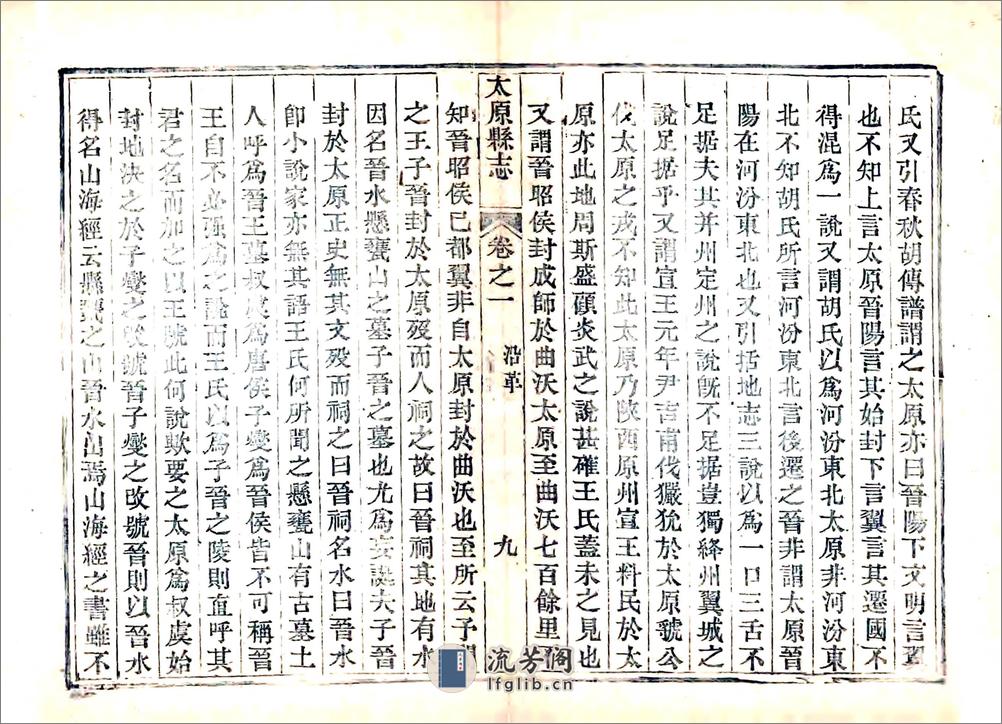 氏又引春秋胡傳譜謂之太原亦曰晉陽下文明言翼
也不知上言太原晉陽言其始封下言翼言其遷國不
得混爲一說又謂胡氏以爲河汾東北太原非河汾東
北不知胡氏所言河汾東北言後遷之晉非謂太原晉
陽在河汾東北也又引括地志三說以爲一口三舌不
足據夫其并州定州之說旣不足據豈獨絳州翼城之
說足據乎又謂宣王元年尹吉甫伐玁狁於太原號公
伐太原之戎不知此太原乃陜西原州宣王料民於太
原亦此地周斯盛顧炎武之說甚確王氏蓋未之見也
又謂晉昭侯封成師於曲沃太原至曲沃七百餘里不
太原縣志
卷之一
沿革
九
知晉昭侯已都翼非自太原封於曲沃也至所云子
之王子晉封於太原歿而人祠之故曰晉祠其地有水
因名晉水懸甕山之墓子晉之墓也尤爲妄誕夫子晉
封於太原正史無其文歿而祠之曰晉祠名水曰晉水
卽小說家亦無其語王氏何所聞之懸甕山有古墓土
人呼爲晉王墓叔虞爲唐侯子燮爲晉侯皆不可稱晉
王自不必强爲之說而王氏以爲子晉之陵則直呼其
君之名而加之以王號此何說歟要之太原爲叔虞始
封地決之於子燮之改號晉子燮之改號晉則以晉水
得名山海經云縣甕之山晉水出焉山海經之書雖不
流芳阁
lfglib.cn